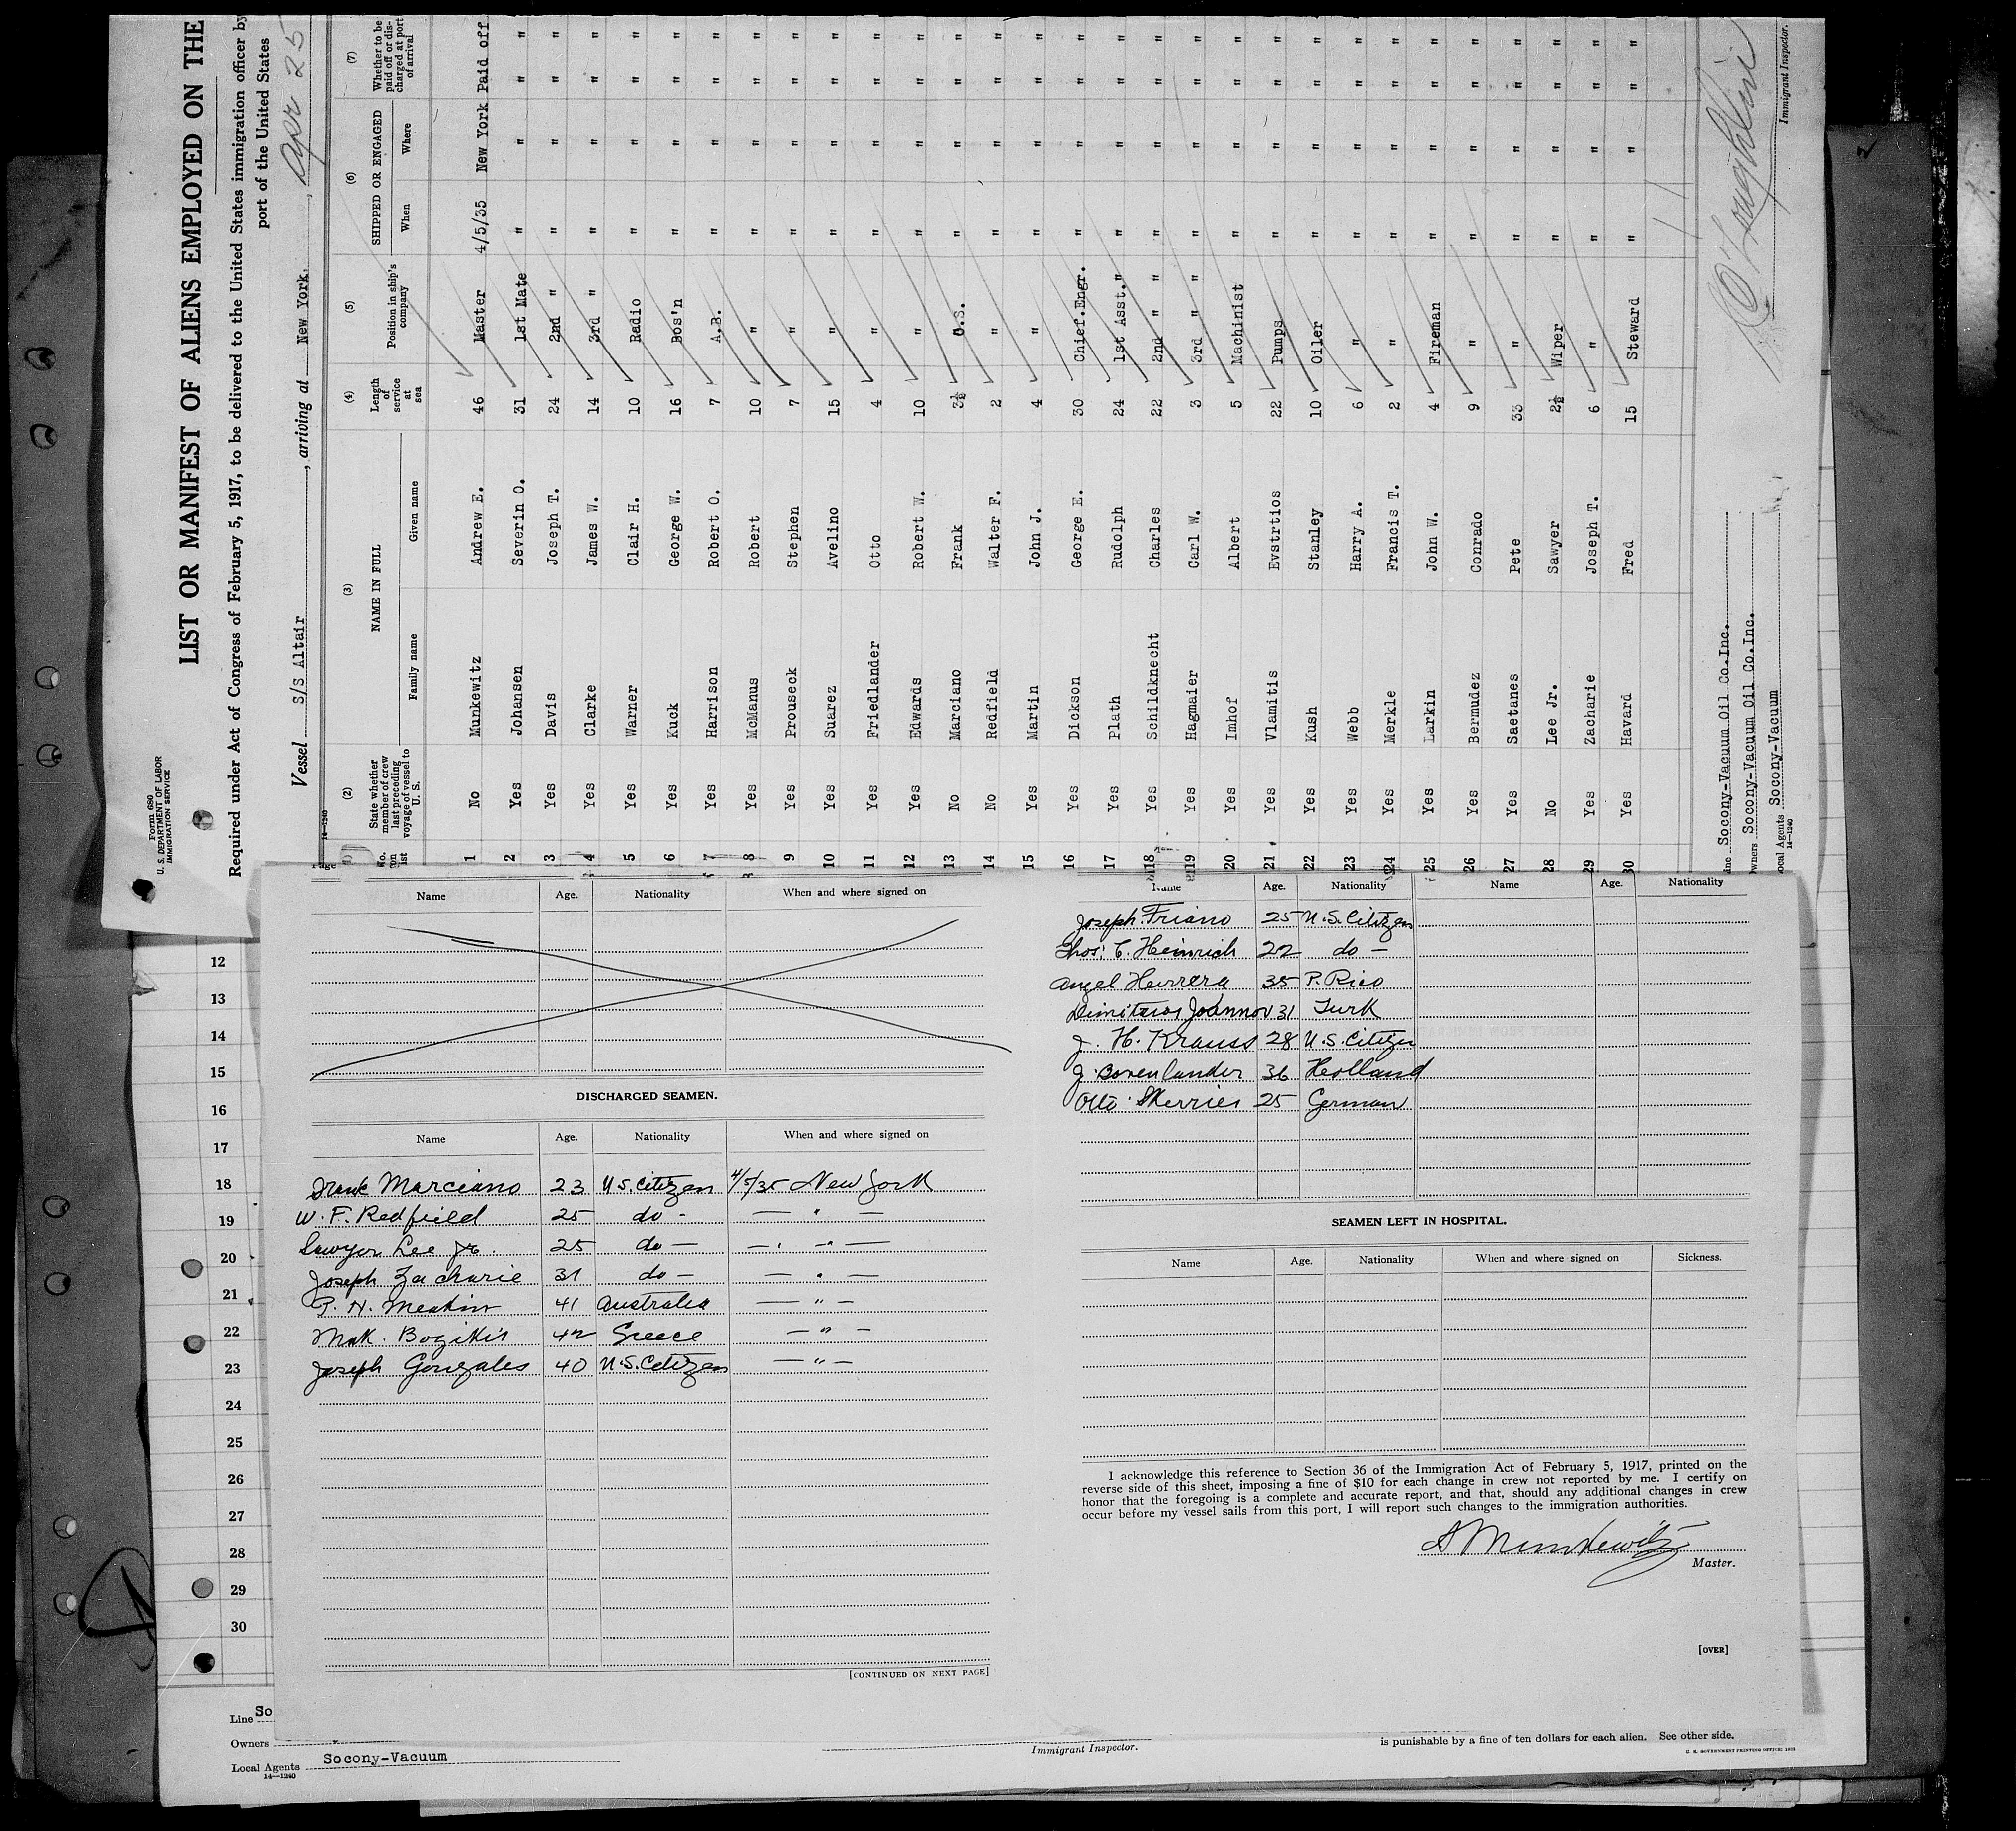 Form 680
U. S. DEPARTMENT OF LABOR
IMMIGRATION SERVICE
LIST OR MANIFEST OF ALIENS EMPLOYED ON THE
Required under Act of Congress of February 5, 1917, to be delivered to the United States immigration officer by
port of the United States
Vessel S/S Altair, arriving at New York, Apr 25
14—1240
(1) (2) (3) (4) (5) (6) (7)
No. on list State whether member of crew last preceding voyage of vessel to U. S. NAME IN FULL Length of service at sea Position in ship's company SHIPPED OR ENGAGED Whether to be paid off or discharged at port of arrival
Family name Given name When Where
1 No Munkewitz Andrew E. 46 Master 4/5/35 New York Paid off
2 Yes Johansen Severin O. 31 1st Mate " " " "
3 Yes Davis Joseph T. 24 2nd " " " " "
4 Yes Clarke James W. 14 3rd " " " " "
5 Yes Warner Clair H. 10 Radio " " " "
6 Yes Kuck George W. 16 Bos'n " " " "
7 Yes Harrison Robert O. 7 A.B. " " " "
8 Yes McManus Robert 10 " " " " "
9 Yes Prouseck Stephen 7 " " " " "
10 Yes Suarez Avelino 15 " " " " "
11 Yes Friedlander Otto 4 " " " " "
12 Yes Edwards Robert W. 10 " " " " "
13 No Marciano Frank 3½ O.S. " " " "
14 No Redfield Walter F. 2 " " " " "
15 Yes Martin John J. 4 " " " " "
16 Yes Dickson George E. 30 Chief.Engr. " " " "
17 Yes Plath Rudolph 24 1st Asst." " " " "
18 Yes Schildknecht Charles 22 2nd " " " " " "
19 Yes Hagmaier Carl W. 3 3rd " " " " " "
20 Yes Imhof Albert 5 Machinist " " " "
21 Yes Vlamitis Evstrtios 22 Pumps " " " "
22 Yes Kush Stanley 10 Oiler " " " "
23 Yes Webb Harry A. 6 " " " " "
24 Yes Merkle Francis T. 2 " " " " "
25 Yes Larkin John W. 4 Fireman " " " "
26 Yes Bermudez Conrado 9 " " " " "
27 Yes Saetanes Pete 33 " " " " "
28 No Lee Jr. Sawyer 2½ Wiper " " " "
29 Yes Zacharie Joseph T. 6 " " " " "
30 Yes Havard Fred 15 Steward " " " "
Line Socony-Vacuum Oil Co.Inc.
Owners Socony-Vacuum Oil Co.Inc.
Local Agents Socony-Vacuum
14—1240
Immigrant Inspector.
Name Age. Nationality When and where signed on
DISCHARGED SEAMEN.
Name Age. Nationality When and where signed on
Frank Marciano 23 U.S. Citizen 4/5/35 New York
W. F. Redfield 25 do - — " —
Sawyer Lee Jr. 25 do — — " —
Joseph Zacharie 31 do — — " —
P. H. Meakin 41 Australia — " —
Mak. Bozikis 42 Greece — " —
Joseph Gonzales 40 U.S. Citizen — " —
[CONTINUED ON NEXT PAGE]
Name Age. Nationality Name Age. Nationality
Joseph Friano 25 U.S. Citizen
Thos. C. Heinrich 22 do —
Angel Herrera 35 P. Rico
Dimitrios Joannov 31 Turk
J. H. Krauss 28 U.S. Citizen
J. Bovenlander 36 Holland
Otto Skerries 25 German
SEAMEN LEFT IN HOSPITAL.
Name Age. Nationality When and where signed on Sickness.
I acknowledge this reference to Section 36 of the Immigration Act of February 5, 1917, printed on the
reverse side of this sheet, imposing a fine of $10 for each change in crew not reported by me. I certify on
honor that the foregoing is a complete and accurate report, and that, should any additional changes in crew
occur before my vessel sails from this port, I will report such changes to the immigration authorities.
A Munkewitz
Master.
[OVER]
12
13
14
15
16
17
18
19
20
21
22
23
24
25
26
27
28
29
30
Line So
Owners
Local Agents Socony-Vacuum
14—1240
Immigrant Inspector.
is punishable by a fine of ten dollars for each alien. See other side.
U. S. GOVERNMENT PRINTING OFFICE: 1932